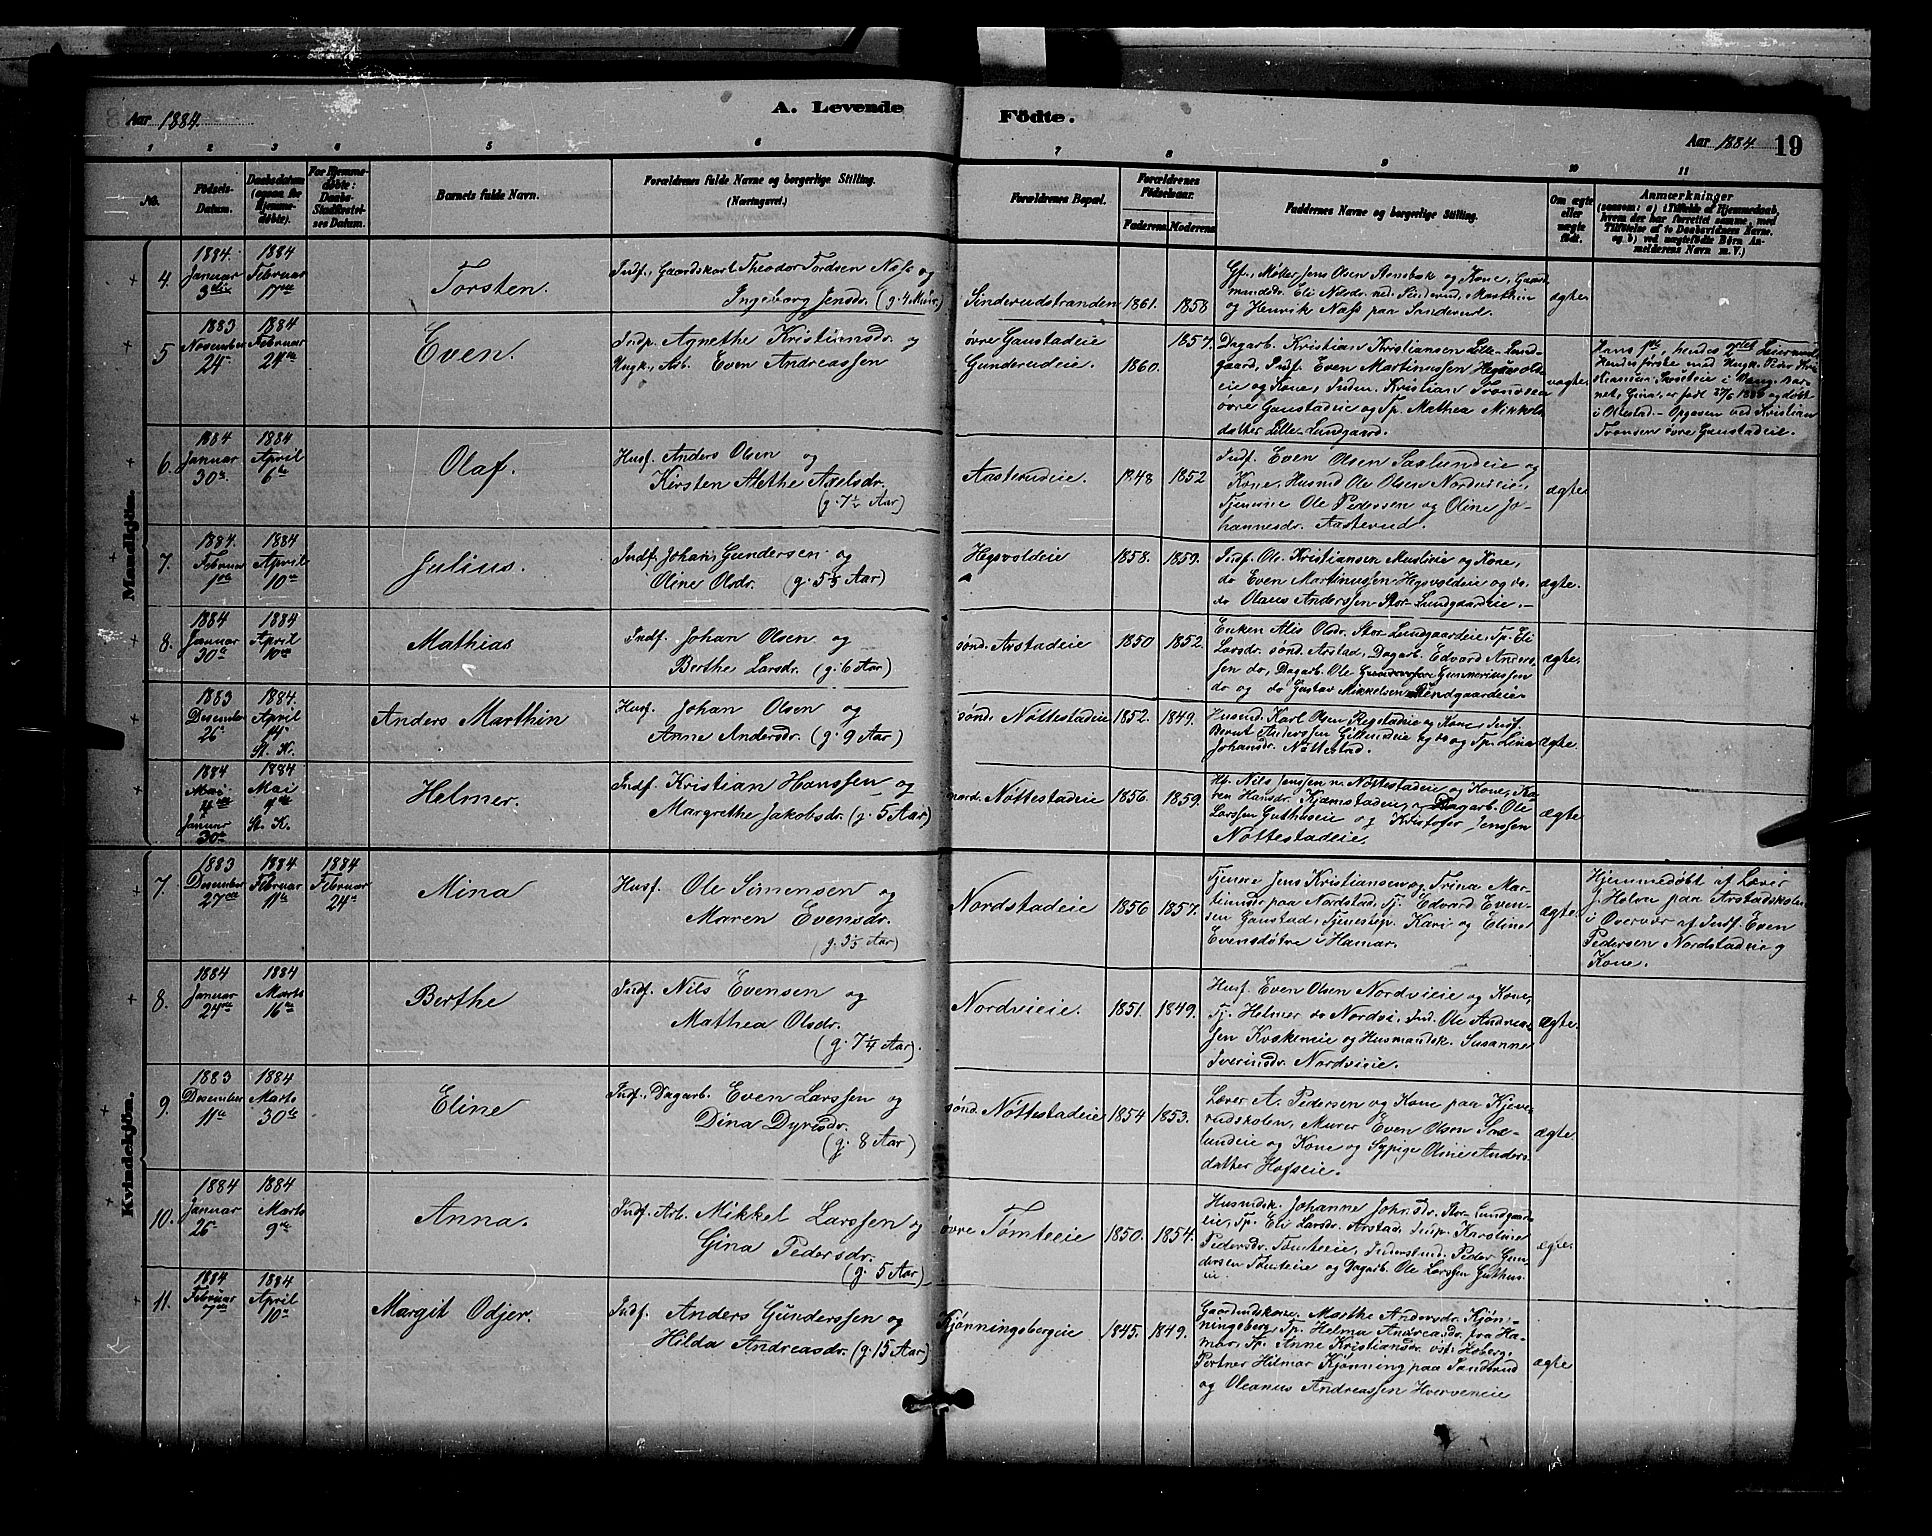 Aar 1884.
A. Levende
Födte.
Aar 1884. 19
1 2 3 4 5 6 7 8 9 10 11
No.
Födsels-Datum.
Daabsdatum (ogsaa for Hjemmedöbte).
For Hjemmedöbte: Daabs-Stadfæstelses Datum.
Barnets fulde Navn.
Forældrenes fulde Navne og borgerlige Stilling. (Næringsvei.)
Forældrenes Bopæl.
Forældrenes Födselsaar.
Faderens. Moderens.
Faddernes Navne og borgerlige Stilling.
Om ægte eller uægte födt.
Anmærkninger
(saasom: a) i Tilfælde af Hjemmedaab, hvem der har forrettet samme, med Tilföielse af to Daabsvidners Navne, og b) ved uægtefödte Börn Anmelderens Navn m. V.)
Mandkjön.
4. 1884 Januar 3die
1884 Februar 17de
Torsten.
Indf., Gaardskarl Theodor Tordsen Næss og
Ingeborg Jensdr. (g. 4 Mdr.)
Sinderudstranden 1861. 1858
Gf., Møller Jens Olsen Aensbak og Kone, Gaard-
mandsdr. Eli Nilsdr. ned. Sinderud, Marthin
og Henrik Næss paa Sanderud.
ægte
5 1883 November 24de
1884 Februar 24de
Even.
Indp. Agnethe Kristiansdr. og
Ungk., Arb. Even Andreassen
øvre Gaustadeie 1857.
Gunderudeie. 1860.
Dagarb. Kristian Kristiansen Lille-Lund-
gaard, Indf. Even Martinussen Hegsvold-
eie og Kone, Inderst. Kristian Tronsen
øvre Gaustadeie og Tp. Mathea Mikkels
datter Lille-Lundgaard.
uægte
Hans 1ste, hendes 2det Leiermaal,
Hendes første med Ungk. Peder Kri-
stiansen, i Vang. Bar-
net, Gina, er født 27/6 1880 og døbt
i Ottestad. - Opgaven ved Kristian
Tronsen øvre Gaustadeie.
6. 1884 Januar 30te
1884 April 6te
Olaf.
Husf. Anders Olsen og
Kirsten Alethe Axelsdr.
(g. 7½ Aar)
Aasterudeie. 1848 1852
Indf. Even Olsen Saxlundeie og
Kone, Husmd Ole Olsen Nordvieie,
Tjenerne Ole Pedersen og Oline Jo-
hannesdr. Aasterud.
ægte
7. 1884. Februar 1ste
1884 April 10de
Julius.
Indf. Johan Gundersen og
Oline Olsdr. (g. 5⅓ Aar)
Hegsvoldeie 1858. 1859.
Indf. Ole Kristiansen Muslieie og Kone,
do Even Martinussen Hegsvoldeie og do.
do Olaus Anderssen Stor-Lundgaardeie.
ægte.
8. 1884 Januar 30te
1884 April 10de
Mathias
Indf. Johan Olsen og
Berthe Larsdr. (g. 6 Aar)
sønd. Arstadeie 1850 1852.
Enken Alis Olsdr. Stor Lundgaardeie, Tp. Eli
Larsdr. sønd. Arstad, Dagarb. Edvard Anders-
sen do, Dagarb. Ole Gunneriussen
do og do Gustav Mikkelsen Lundgaardeie.
ægte.
1883 Desember 26de
1884. April 14de St. K.
Anders Marthin
Husf. Johan Olsen og
Anne Andersdr. (g. 9 Aar)
sønd. Nøttestadeie 1852. 1849.
Husmd. Karl Olsen Regstadeie og Kone, Indf.
Bernt Anderssen Gillundeie og do og Tp. Lina
Johansdr. Nøttestad.
ægte.
1884 Mai 4de Januar 30te
1884 Mai 4de St. K.
Helmer.
Indf. Kristian Hanssen og
Margrethe Jakobsdr. (g. 5 Aar)
nord. Nøttestadeie 1856. 1859.
Hb. Nils Jenssen n. Nøttestadeie og Kone, Ka-
ren Hansdr. Kjæmstadeie, Dagarb. Ole
Larssen Guthuseie og Kristofer Jenssen
Nøttestadeie.
ægte
Kvindekjön.
7. 1883 Desember 27de
1884 Februar 11te
1884 Februar 24de
Mina
Husf. Ole Simensen og
Maren Evensdr.
(g. 3⅓ Aar)
Nordstadeie 1856 1857.
Tjenere Jens Kristiansen og Trina Mar-
tinsdr paa Nordstad, Tj. Edvard Even-
sen Gaustad, Tjenestep. Kari og Eline
Evensdøtre i Hamar.
ægte
Hjemmedøbt af Lærer
J. Holen paa Arstadskolen
i Overvær af Indf. Even
Pedersen Nordstadeie og
Kone.
8. 1884 Januar 24de
1884 Marts 16de
Berthe
Indf. Nils Evensen og
Mathea Olsdr.
(g. 7¼ Aar).
Nordvieie. 1851. 1849.
Husf. Even Olsen Nordvieie og Kone,
Tj. Helmer do Nordvi, Ind. Ole Andreas-
sen Kvækeneie og Husmandsk. Susanne
Iverinsdr. Nordvieie.
ægte.
9. 1883 Desember 11te
1884 Marts 30te
Eline
Indf., Dagarb. Even Larssen og
Dina Dyresdr.
(g. 8 Aar)
sønd. Nøttestadeie 1854 1853.
Lærer A. Pedersen og Kone paa Kjeve-
rudskolen, Murer Even Olsen Sax-
lundeie og Kone og Sypige Oline Anders
datter Hofseie.
ægte
10. 1884 Januar 26
1884 Marts 9de
Anna.
Indf. Arb. Mikkel Larssen og
Gina Pedersdr.
(g. 5 Aar)
øvre Tømteeie 1850. 1854.
Husmdsk. Johanne Johs.dr. Stor-Lundgaard-
eie, Tp. Eli Larsdr. Arstad. Indp. Karoline
Pedersdr. Tømteeie, Inderstmd. Peder Gun-
dersen Tømteeie og Dagarb. Ole Larssen Guthus-
eie
ægte.
11. 1884 Februar 7de
1884 April 10de
Margit Odjer.
Indf. Anders Gunderssen og
Hilda Andreasdr. (g. 15 Aar)
Kjønningsbergeie 1845. 1849.
Gaardmdskone Marthe Andersdr. Kjøn-
ningsberg, Tp. Helma Andreasdr. fra Ha-
mar, Tp. Anne Kristiansdr. vst. Hoberg,
Portner Hilmar Kjønning paa Sanderud
og Oleanus Andreassen Hverveneie
ægte